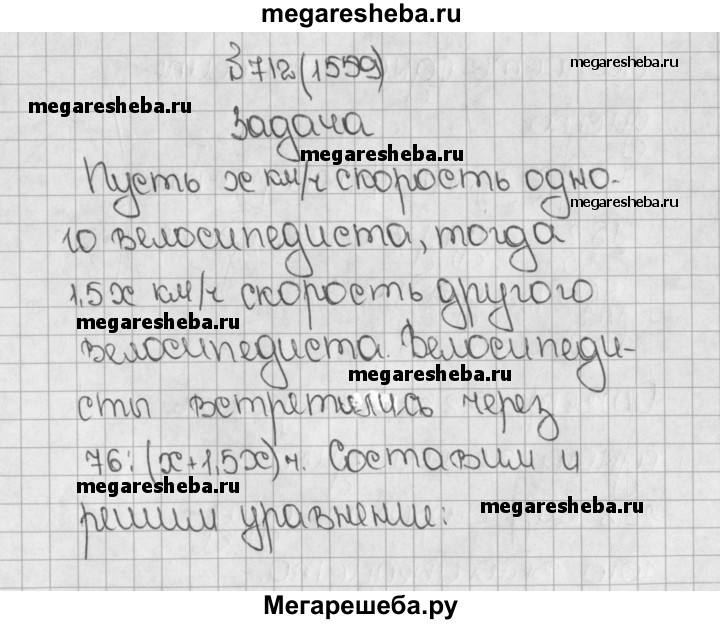 megaresheba.ru
З 712(1559)
megaresheba.ru
megaresheba.ru
Задача
megaresheba.ru
Пусть х км/ч скорость одно-
megaresheba.ru
го велосипедиста, тогда
1,5х км/ч скорость другого
megaresheba.ru
велосипедиста. Велосипеди-
megaresheba.ru
сты встретились через
76:(х+1,5х)ч. Составим и
megaresheba.ru
megaresheba.ru
решим уравнение:
Мегарешеба.ру